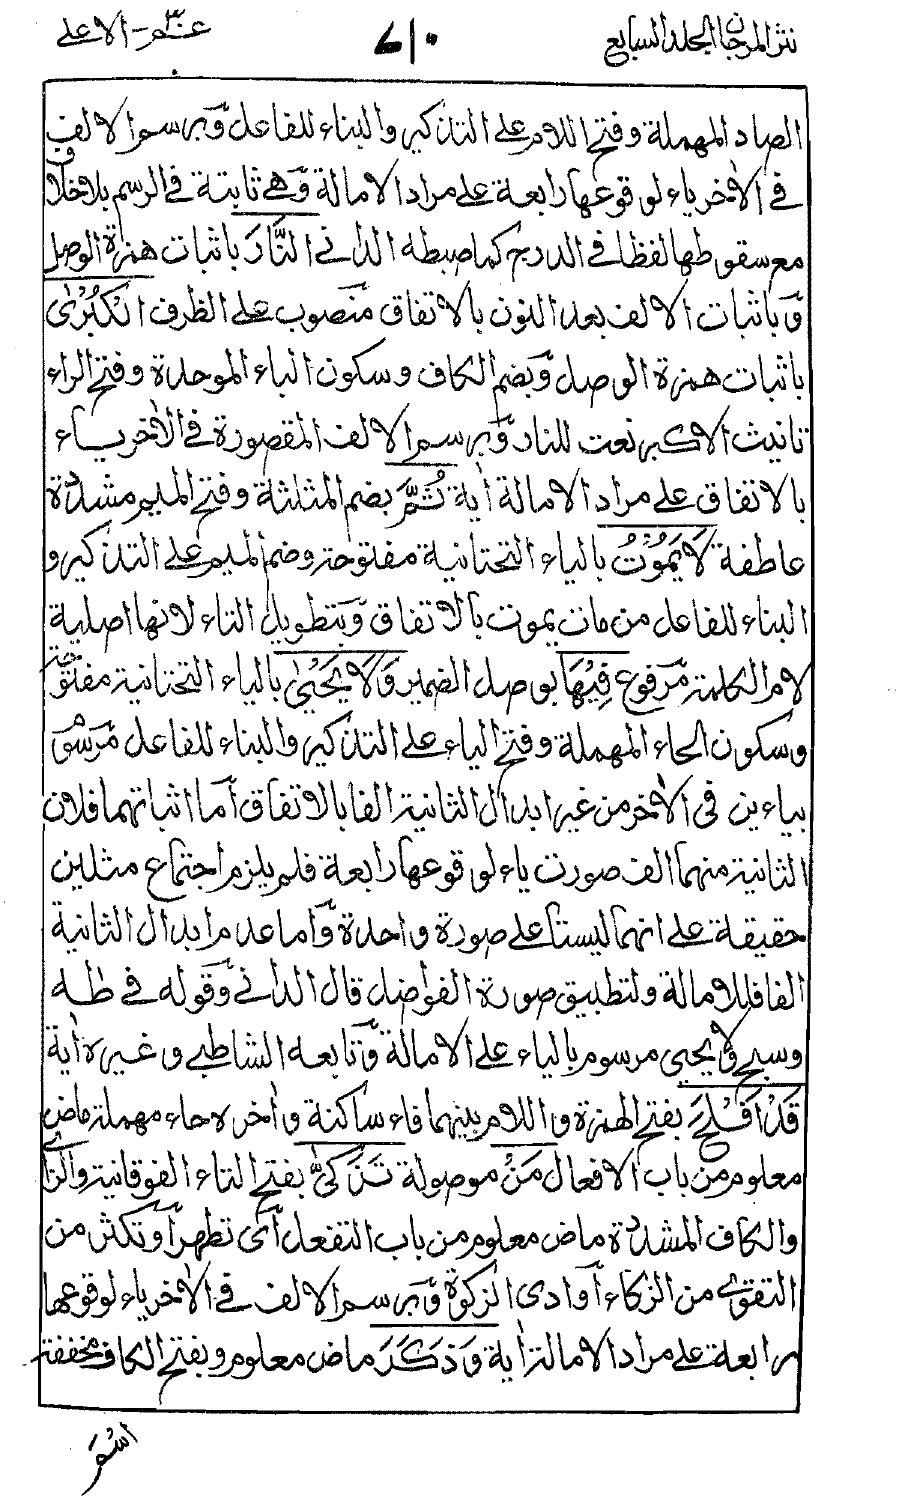 نثر المرجان المجلد السابع
٧١٠
عمّ - الاعلى
الصاد المهملة وفتح اللام على التذكير والبناء للفاعل وَبرسم الالف
فى الاٰخر ياء لوقوعها رابعة على مراد الامالة وَهى ثابتة فى الرسم بلا خلاف
مع سقوطها لفظا فى الدرج كما ضبطه الدانى النَّارَ باثبات همزة الوصل
وَباثبات الالف بعد النون بالاتفاق منصوب على الظرف الْكُبْرٰى
باثبات همزة الوصل وَبضم الكاف وسكون الباء الموحدة وفتح الراء
تانيث الاكبر نعت للنار وَبرسم الالف المقصورة فى الاٰخر ياء
بالاتفاق على مراد الامالة اٰية ثُمَّ بضم المثلثة وفتح الميم مشددة
عاطفة لَا يَمُوْتُ بالياء التحتانية مفتوحة وضم الميم على التذكير و
البناء للفاعل من مات يموت بالاتفاق وَبتطويل التاء لانها اصلية
لام الكلمة مرفوع فِيْهَا بوصل الضمير وَلَا يَحْيٰى بالياء التحتانية مفتوحة
وسكون الحاء المهملة وفتح الياء على التذكير والبناء للفاعل مرسوم
بياءين فى الاٰخر من غير ابدال الثانية الفا بالاتفاق اَما اثباتهما فلان
الثانية منهما الف صورت ياء لوقوعها رابعة فلم يلزم اجتماع مثلين
حقيقة على انهما ليستا على صورة واحدة وَاما عدم ابدال الثانية
الفا فللامالة ولتطبيق صورة الفواضل قال الدانى وَقوله فى طٰه
وسبح ولا يحيى مرسوم بالياء على الامالة وَتابعه الشاطبى وغيره اٰية
قَدْ اَفْلَحَ بفتح الهمزة واللام بينهما فاء ساكنة واٰخره حاء مهملة ماض
معلوم من باب الافعال مَنْ موصولة تَزَكّٰى بفتح التاء الفوقانية والزاى
والكاف المشددة ماض معلوم من باب التفعل اَى تطهر اَو تكثر من
التقوى من الزكاء اَو ادى الزكوة وَبرسم الالف فى الاٰخر ياء لوقوعها
رابعة على مراد الامالة اٰية وَذَكَرَ ماض معلوم وبفتح الكاف مخففة
اسْمَ